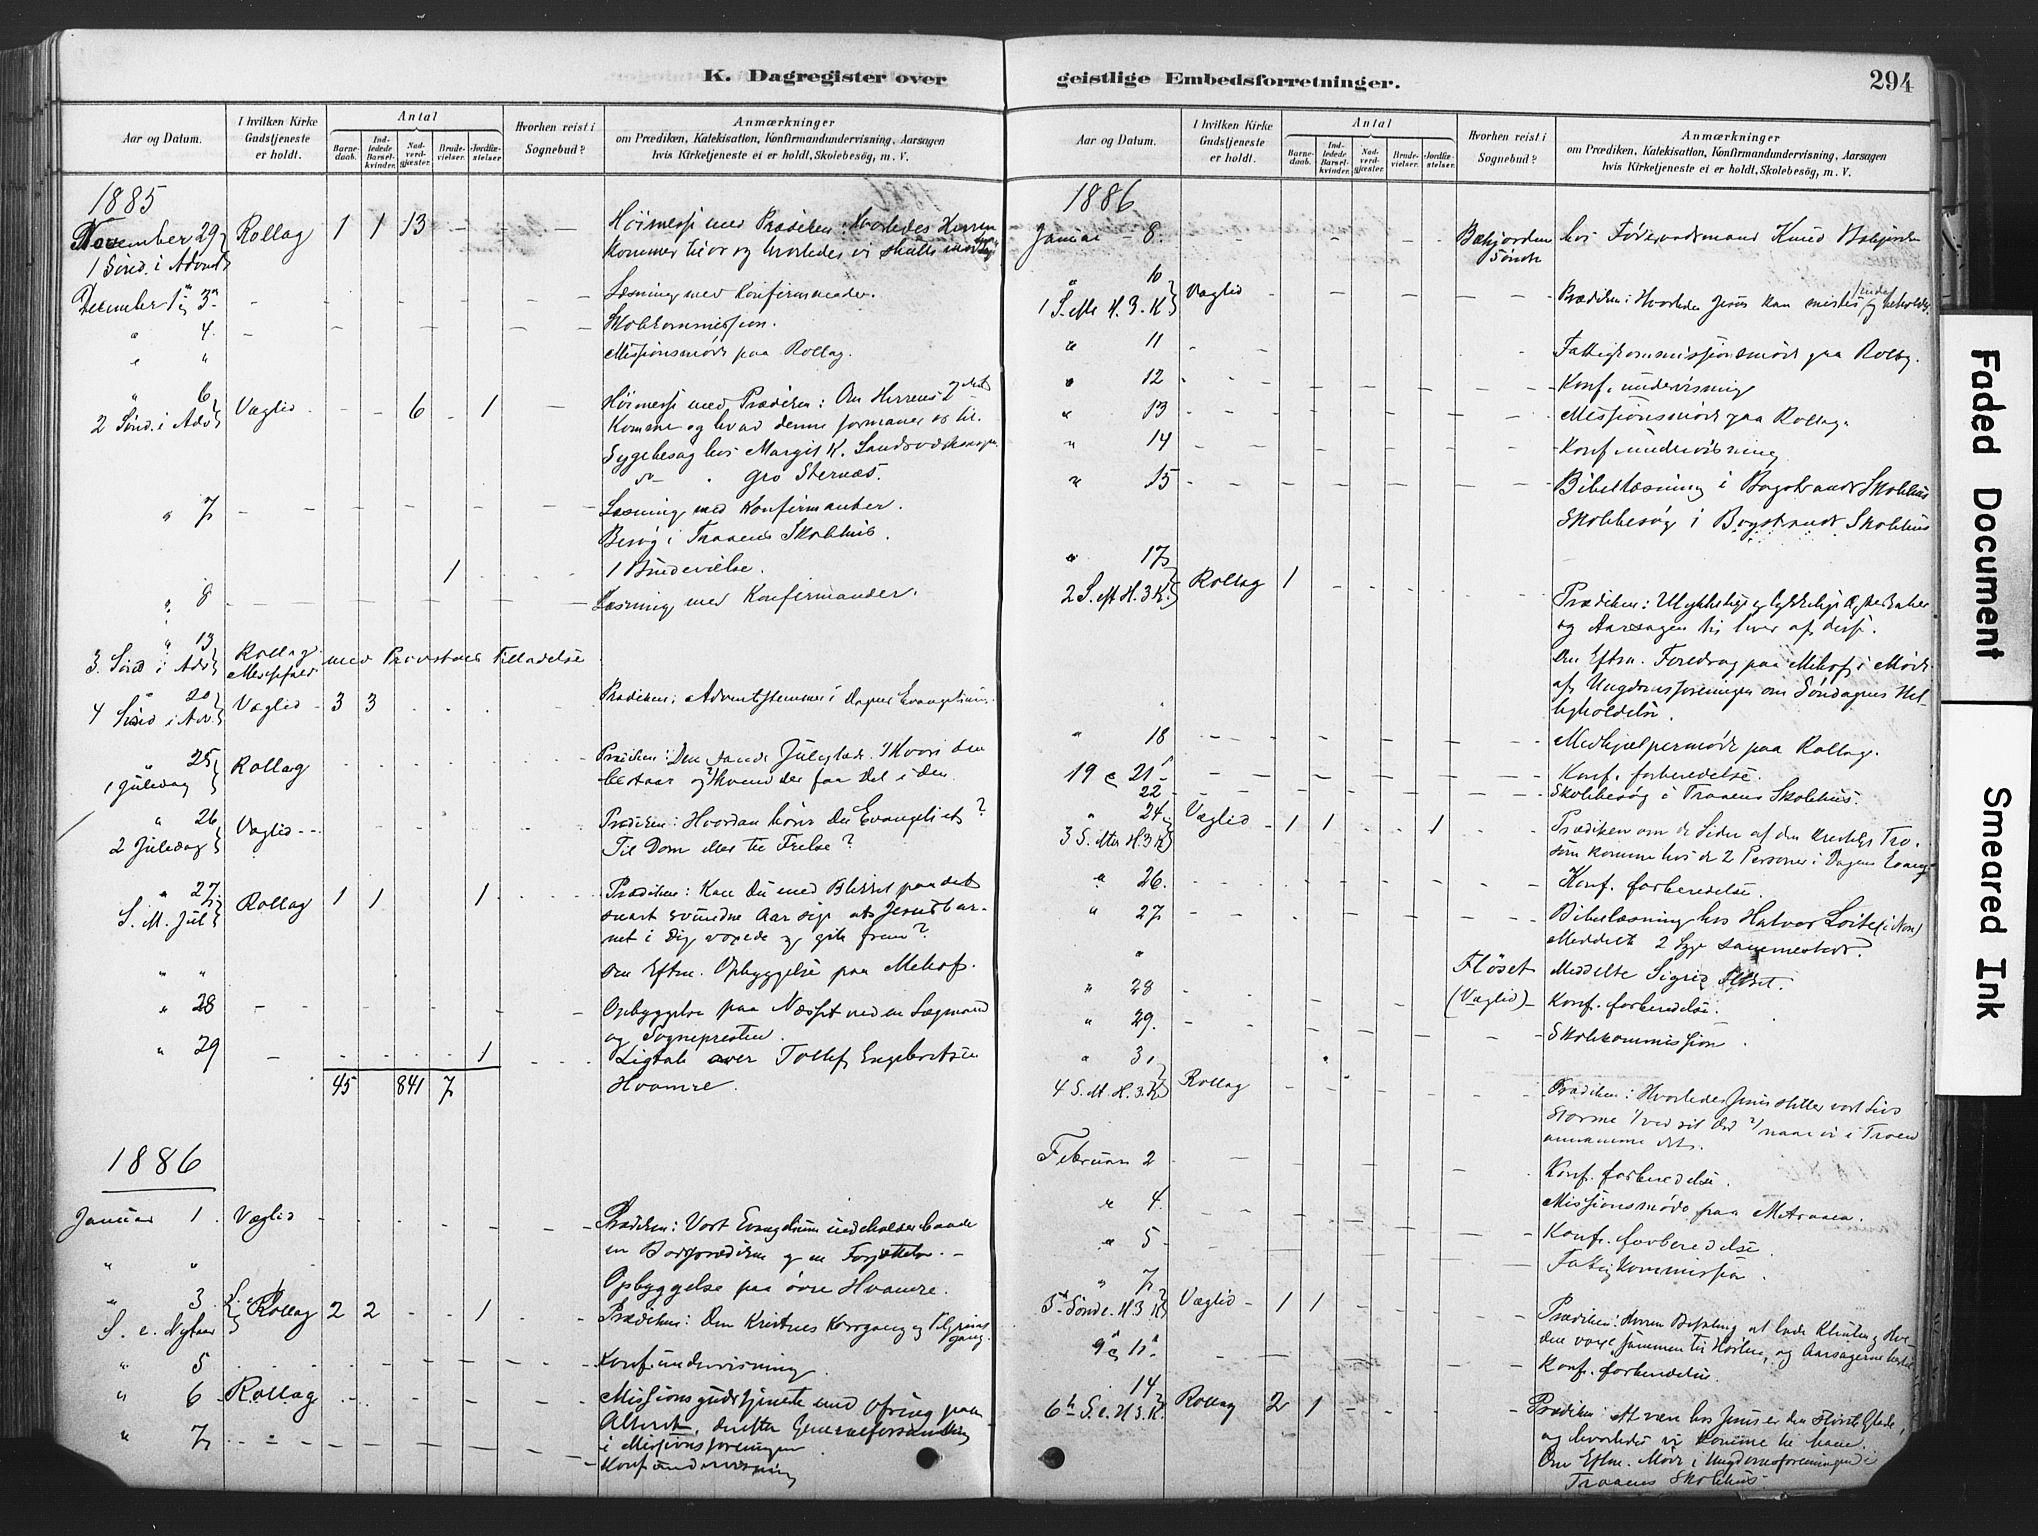 K. Dagregister over
Aar og Datum.
I hvilken Kirke Gudstjeneste er holdt.
Antal
Barnedaab.
Indledede Barselkvinder.
Nadverdgjester.
Brudevielser.
Jordfæstelser
Hvorhen reist i Sognebud?
Anmærkninger
om Prædiken, Katekisation, Konfirmandundervisning, Aarsagen
hvis Kirketjeneste ei er holdt, Skolebesög, m. V.
1885
November 29 Rollag 1 1 13 - Höimesse med Prædiken: Hvorledes Herren
1 Sönd. i Advent kommer til os og hvorledes vi skulle
December 1 3 - Læsning med Konfirmander.
" 4. - Skolekommission.
" " Missionsmöde paa Rollag.
" 6 Væglid - - 6 - 1 Höimesse med Prædiken: Om Herrens
2 Sönd. i Adv. Komme og hvad denne formaner os til.
Sygebesög hos Margit K.
Gro Sternæs.
" 7 - Læsning med Konfirmander.
Besög i Traaens Skolehus.
1 1 Brudevielse.
" 8 - Læsning med Konfirmander.
" 13 Rollag
3. Sönd i Adv. Messefald med Provstens Tilladelse
" 20 Væglid - 3 3 Prædiken: Adventsstemmer i Dagens Evangelium.
4 Sönd i Adv.
" 25 Rollag Prædiken: Den sande Juleglæde. 1/ Hvori den
1 Juledag bestaar og 2/ hvem der faar del i den.
" 26 Væglid - - Prædiken: Hvordan hörer Du Evangeliet?
2 Juledag Til Dom eller til Frelse?
" 27 Rollag 1 1 1 Prædiken: Kan Du med Blikket paa det
S. M. Jul snart svundne Aar sige at Jesusbar-
net i Dig voxede og gik frem?
" " Om Eftm. Opbyggelse paa Mehof.
" 28 - Opbyggelse paa Næsset ved en Lægmand
og Sognepresten.
" 29 - 1 Ligtale over Tollef Engebretsen
45 841 7 Hvamre.
1886
Januar 1. Væglid Prædiken: Vort Evangelium indeholder baade
en Bodsprædiken og en Forjættelse. -
" " Opbyggelse paa övre Hvamre.
" 3. Rollag 2 2 - - 1 Prædiken: Den Kristnes Korsgang og Pilgrims
S. e. Nytaar gang.
" 5 Konf. undervisning.
" 6 Rollag Missionsgudstjeneste med Ofring paa
Alteret, derefter Generalforsamling
" 7 i Missionsforeningen
Konf undervisning
geistlige Embedsforretninger.
294
Aar og Datum.
I hvilken Kirke Gudstjeneste er holdt.
Antal
Barnedaab.
Indledede Barselkvinder.
Nadverdgjester.
Brudevielser.
Jordfæstelser.
Hvorhen reist i Sognebud?
Anmærkninger
om Prædiken, Katekisation, Konfirmandundervisning, Aarsagen
hvis Kirketjeneste ei er holdt, Skolebesög, m. V.
1886
Januar - 8. Bækjorden hos Föderaadsmand Knud Bækjorden
Söndre
" 10 Væglid Prædiken: Hvorledes Jesus kan mistes og beholdes.
1 S. eft. H. 3. K
" 11 Fattigkommissionsmöde paa Rollag.
" 12 Konf. undervisning
" 13 Missionsmöde paa Rollag.
" 14 Konf undervisning
" 15 Bibellæsning i Bogstrands Skolehus
Skolebesög i Bogstrands Skolehus
" 17 Rollag 1
2 S. eft H. 3 K. Prædiken: Ulykkelige og lykkelige Ægteskaber
og Aarsagen til hver af disse.
Om Eftm. Foredrag paa Mehof i Möde
af Ungdomsforeningen om Söndagens Hel-
ligholdelse.
" 18 Medhjælpermöde paa Rollag.
19 & 21 Konf. forberedelse.
22 Skolebesög i Traaens Skolehus.
" 24. Væglid - 1 1 1 Prædiken om de Sider af den kristelige Tro
3 S. efter H. 3 K som komme hos de 2 Personer i Dagens Evang.
" 26. Konf. forberedelse.
" 27 Bibellæsning hos Halvor Loite (i Nore)
" Meddelte 2 Syge sammesteds.
Flöset Meddelte Sigrid Flöset.
" 28 (Væglid) - Konf. forberedelse.
" 29. Skolekommission.
" 31
4 S. eft. H. 3. K Rollag Prædiken: Hvorledes Jesus stiller vort Livs
Storme 1/ ved sit Ord 2/ naar vi i Troen
annamme det.
Februar 2 Konf. forberedelse.
" 4. Missionsmöde paa
" 5 Konf. forberedelse.
Fattigkommission.
" 7 Væglid - 1 1
5 Sönd e. H 3 K Prædiken: Herren Befaling at lade Klinten og Hve
den voxe sammen til Hösten, og Aarsagerne hertil
9 & 11 Konf. forberedelse.
14 Rollag 2 1
6te S. e. H 3. K. Prædiken: At være hos Jesus er den störste Glæde,
og hvorledes vi komme til ham.
Om Eftm. Möde i Ungdomsforeningen i
Traaens Skolehus.
Faded Document
Smeared Ink